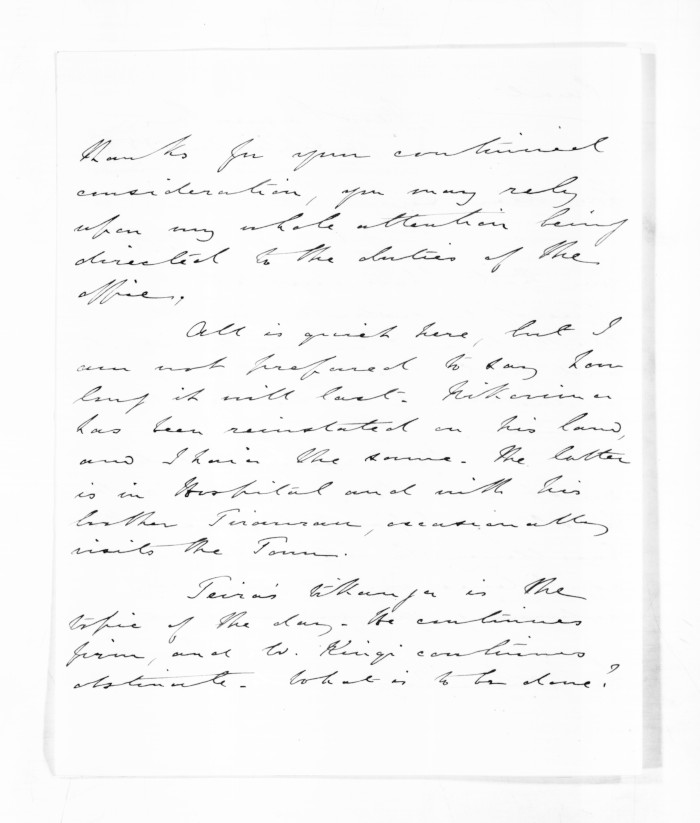 thanks for your continued
consideration, you may rely
upon my whole attention being
directed to the duties of the
office.
All is quiet here, but I
am not prepared to say how
long it will last. Nikorima
has been reinstated on his land,
and Ihaia the same. The latter
is in Hospital and with his
brother occasionally
visits the Town.
Teira's tikanga is the
topic of the day. He continues
firm, and W. Kingi continues
obstinate. What is to be done?